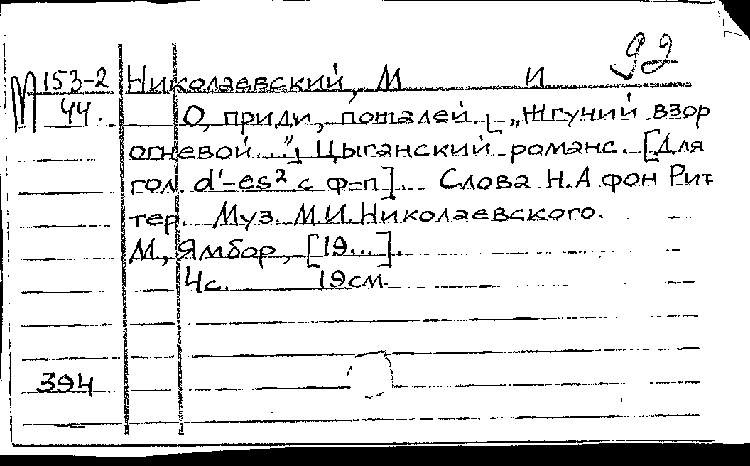 92
М 153-2 Николаевский, М И
44. О, приди, пожалей. [„Жгучий взор
огневой..."] Цыганский романс. [Для
гол. d'-es² с ф-п]. Слова Н.А фон Рит-
тер. Муз. М.И. Николаевского.
М., Ямбор, [19...].
4с. 19см.
394